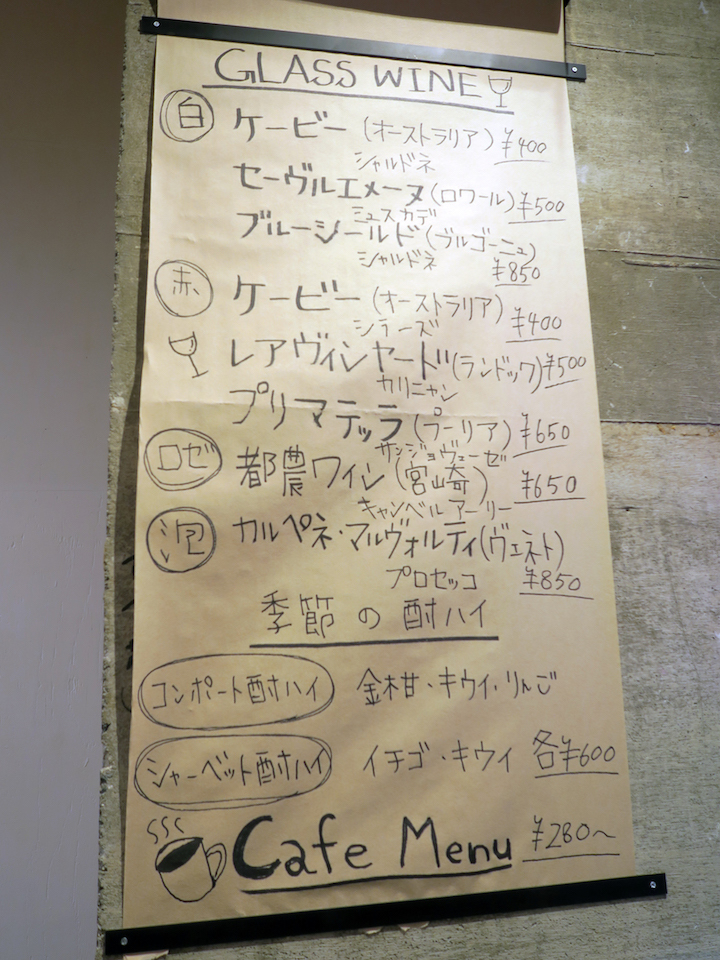 GLASS WINE
白 ケービー (オーストラリア) ¥400
シャルドネ
セーヴルエメーヌ (ロワール) ¥500
ミュスカデ
ブルーシールド (ブルゴーニュ)
シャルドネ ¥850
赤 ケービー (オーストラリア) ¥400
シラーズ
レアヴィンヤード (ラングドック) ¥500
カリニャン
プリマテッラ (プーリア) ¥650
サンジョヴェーゼ
ロゼ 都農ワイン (宮崎) ¥650
キャンベルアーリー
泡 カルペネ・マルヴォルティ (ヴェネト)
プロセッコ ¥850
季節の酎ハイ
コンポート酎ハイ 金柑・キウイ・りんご
シャーベット酎ハイ イチゴ・キウイ 各¥600
Cafe Menu ¥280〜